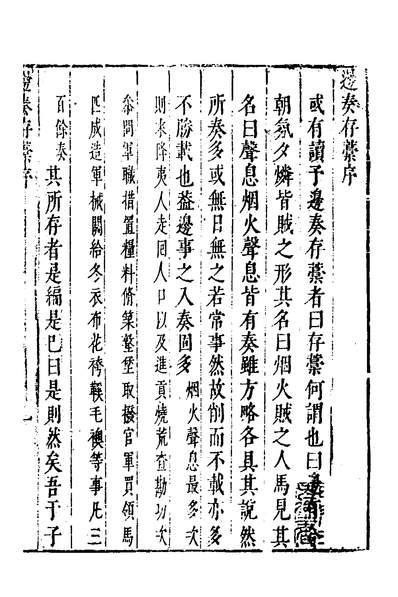 邊奏存藁序
或有讀予邊奏存藁者曰存藁何謂也曰
朝氛夕燐皆賊之形其名曰烟火賊之人馬見其
名曰聲息烟火聲息皆有奏雖方略各具其說然
所奏多或無日無之若常事然故削而不載亦多
不勝載也葢邊事之入奏固多 烟火聲息最多次
則来降夷人走回人口以及進貢燒荒查勘功次
叅問軍職措置糧料脩築墪堡取撥官軍買領馬
匹成造軍械關給冬衣布花袴鞋毛襖等事凡三
百餘奏 其所存者是編是已曰是則然矣吾于子
邊奏存藁序